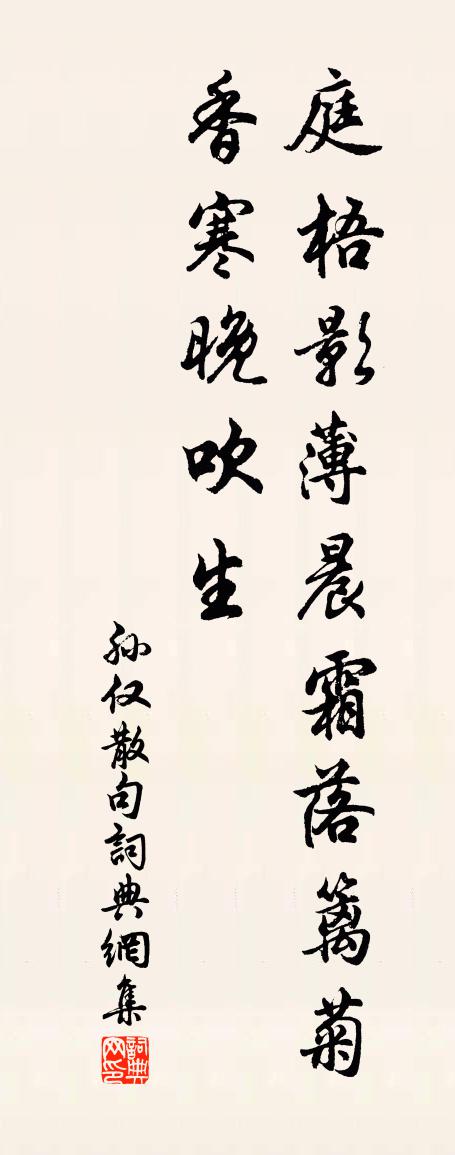 庭梧影薄晨霜落篱菊
香寒晚吹生
孙仅散句詞典網集
詞典网印